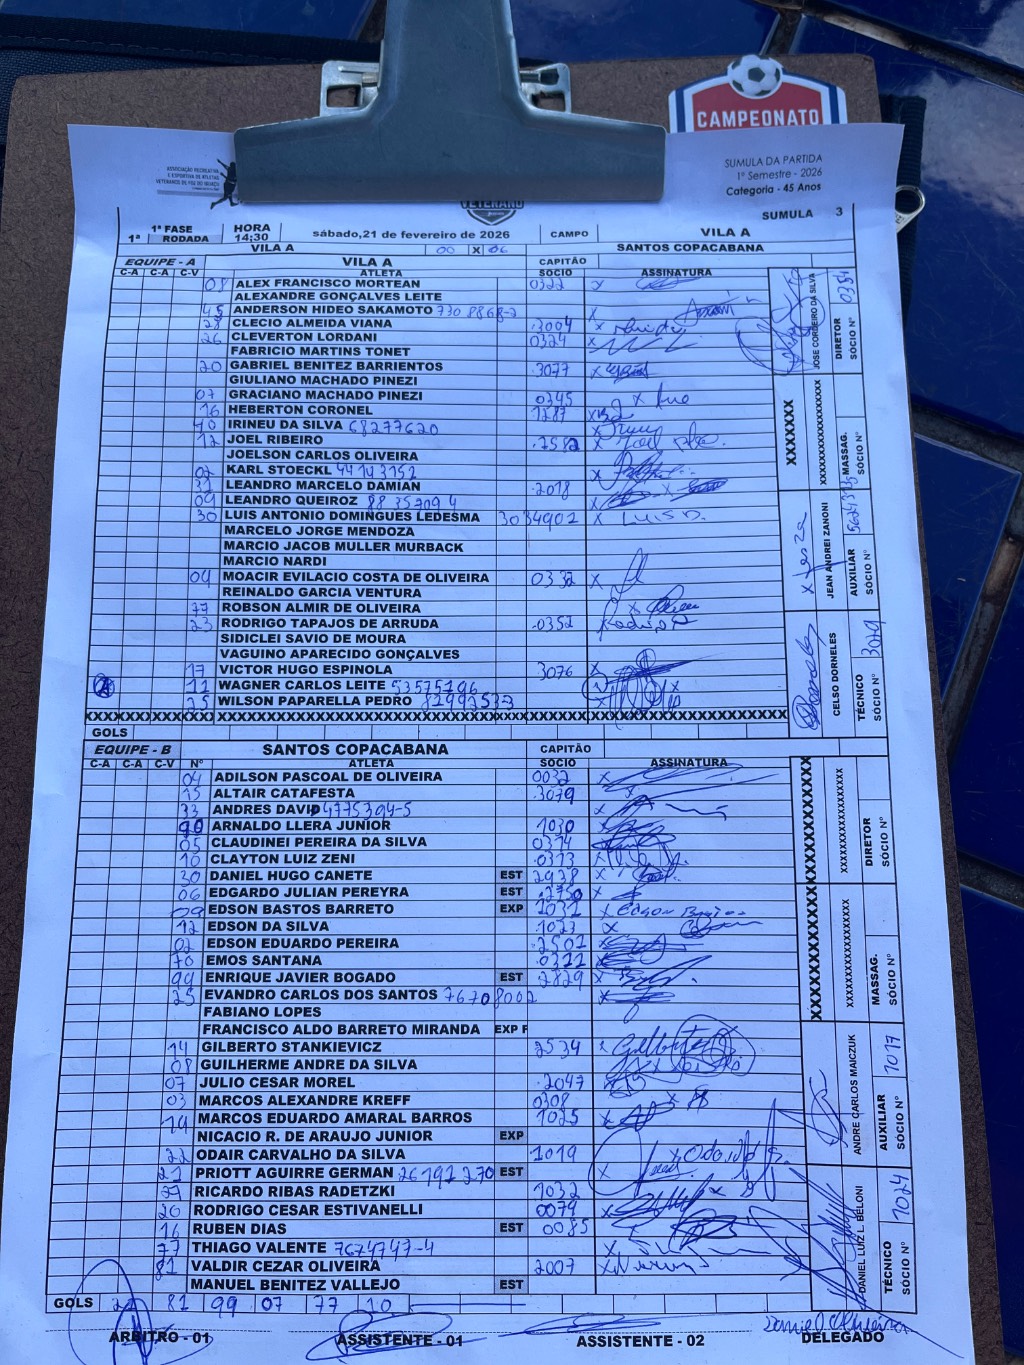 CAMPEONATO
ASSOCIAÇÃO RECREATIVA
E ESPORTIVA DE ATLETAS
VETERANOS DE FOZ DO IGUAÇU
VETERANO
SUMULA DA PARTIDA
1º Semestre - 2026
Categoria - 45 Anos
SUMULA 3
1ª 1ª FASE RODADA HORA 14:30 sábado,21 de fevereiro de 2026 CAMPO VILA A
VILA A 00 X 06 SANTOS COPACABANA
EQUIPE - A VILA A CAPITÃO
C-A C-A C-V ATLETA SOCIO ASSINATURA
08 ALEX FRANCISCO MORTEAN 0322
ALEXANDRE GONÇALVES LEITE
45 ANDERSON HIDEO SAKAMOTO 730 8868-2
28 CLECIO ALMEIDA VIANA 3004
26 CLEVERTON LORDANI 0324
FABRICIO MARTINS TONET
20 GABRIEL BENITEZ BARRIENTOS 3077
GIULIANO MACHADO PINEZI
07 GRACIANO MACHADO PINEZI 0345
16 HEBERTON CORONEL 1287
40 IRINEU DA SILVA 68277620
12 JOEL RIBEIRO 2582
JOELSON CARLOS OLIVEIRA
02 KARL STOECKL 44143152
31 LEANDRO MARCELO DAMIAN 2018
09 LEANDRO QUEIROZ 88352094
30 LUIS ANTONIO DOMINGUES LEDESMA 3034902 X LUIS D.
MARCELO JORGE MENDOZA
MARCIO JACOB MULLER MURBACK
MARCIO NARDI
04 MOACIR EVILACIO COSTA DE OLIVEIRA 0332
REINALDO GARCIA VENTURA
77 ROBSON ALMIR DE OLIVEIRA
23 RODRIGO TAPAJOS DE ARRUDA 0352
SIDICLEI SAVIO DE MOURA
VAGUINO APARECIDO GONÇALVES
17 VICTOR HUGO ESPINOLA 3076
11 WAGNER CARLOS LEITE 53575796
25 WILSON PAPARELLA PEDRO 82992533
GOLS
JOSE CORDEIRO DA SILVA DIRETOR SÓCIO Nº 0384
XXXXXXX XXXXXXXXXXXXXXXXX MASSAG. SÓCIO Nº
JEAN ANDREI ZANONI AUXILIAR SÓCIO Nº
CELSO DORNELES TÉCNICO SÓCIO Nº 3079
EQUIPE - B SANTOS COPACABANA CAPITÃO
C-A C-A C-V Nº ATLETA SOCIO ASSINATURA
04 ADILSON PASCOAL DE OLIVEIRA 0032
15 ALTAIR CATAFESTA 3079
33 ANDRES DAVID 4775394-5
90 ARNALDO LLERA JUNIOR 1030
05 CLAUDINEI PEREIRA DA SILVA 0374
10 CLAYTON LUIZ ZENI 0373
30 DANIEL HUGO CANETE EST 2938
06 EDGARDO JULIAN PEREYRA EST 2750
09 EDSON BASTOS BARRETO EXP 1031
12 EDSON DA SILVA 1023
02 EDSON EDUARDO PEREIRA 2501
70 EMOS SANTANA 0322
99 ENRIQUE JAVIER BOGADO EST 2829
25 EVANDRO CARLOS DOS SANTOS 76708002
FABIANO LOPES
FRANCISCO ALDO BARRETO MIRANDA EXP F
14 GILBERTO STANKIEVICZ 2534
08 GUILHERME ANDRE DA SILVA
07 JULIO CESAR MOREL 2047
03 MARCOS ALEXANDRE KREFF 0308
19 MARCOS EDUARDO AMARAL BARROS 1025
NICACIO R. DE ARAUJO JUNIOR EXP
22 ODAIR CARVALHO DA SILVA 1019
21 PRIOTT AGUIRRE GERMAN 26192270 EST
29 RICARDO RIBAS RADETZKI 1032
20 RODRIGO CESAR ESTIVANELLI 0079
16 RUBEN DIAS EST 0085
77 THIAGO VALENTE 7674747-4
81 VALDIR CEZAR OLIVEIRA 2007
MANUEL BENITEZ VALLEJO EST
XXXXXXXXXXXXXXXXX DIRETOR SÓCIO Nº
XXXXXXXXXXXXXXXXX MASSAG. SÓCIO Nº
ANDRE CARLOS MAICZUK AUXILIAR SÓCIO Nº 1017
DANIEL LUIZ L. BELONI TÉCNICO SÓCIO Nº 1024
GOLS 22 81 99 07 77 10
ARBITRO - 01 ASSISTENTE - 01 ASSISTENTE - 02 DELEGADO